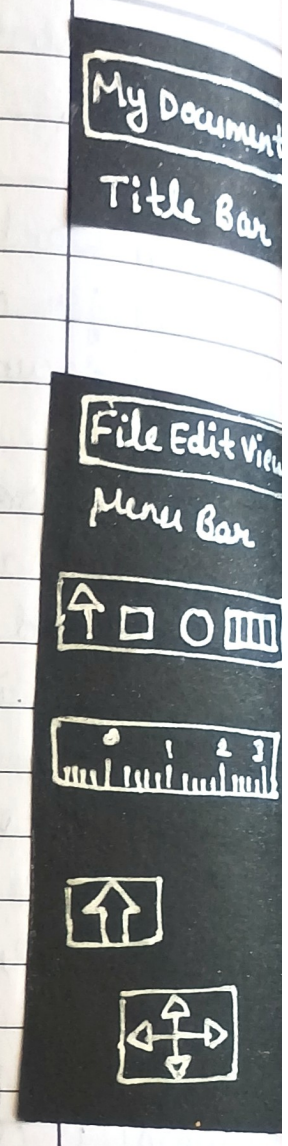 My Document
Title Bar
File Edit View
Menu Bar
0 1 2 3